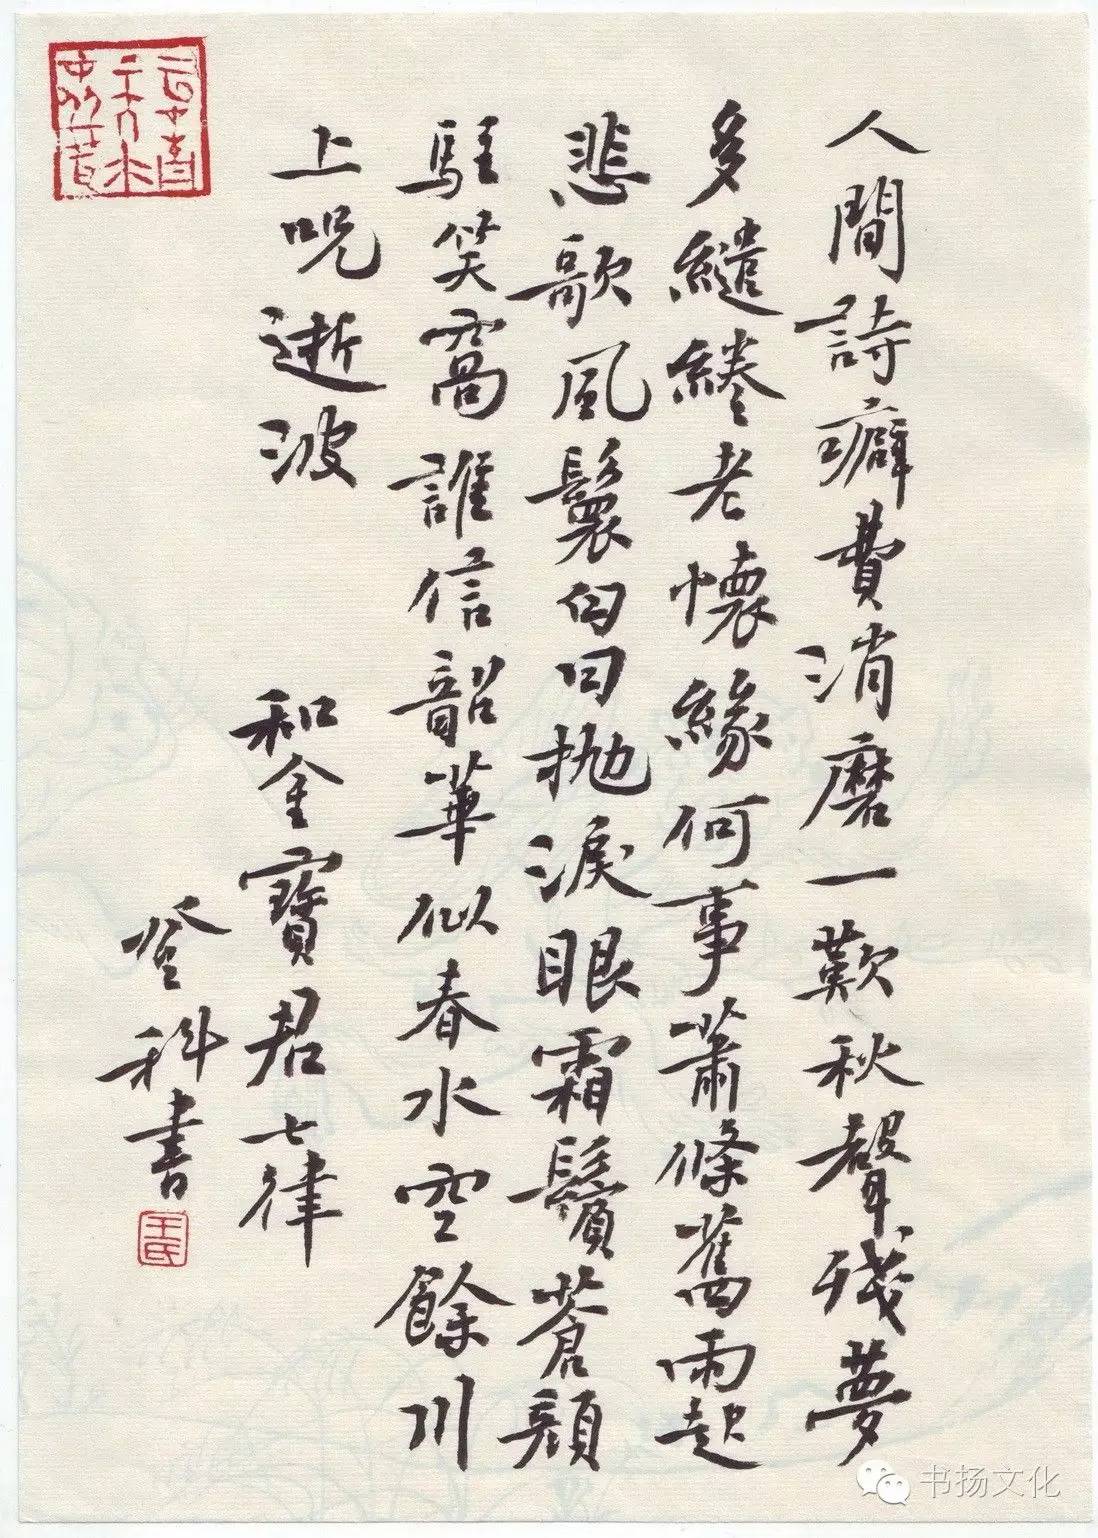 人間詩癖費消磨一歎秋聲殘夢
多繾綣老懷緣何事蕭條舊雨起
悲歌風鬟抛淚眼霜鬢蒼顏
駐笑窩誰信韶華似春水空餘川
上呪逝波
和金寶君七律
登科書
王氏
书扬文化